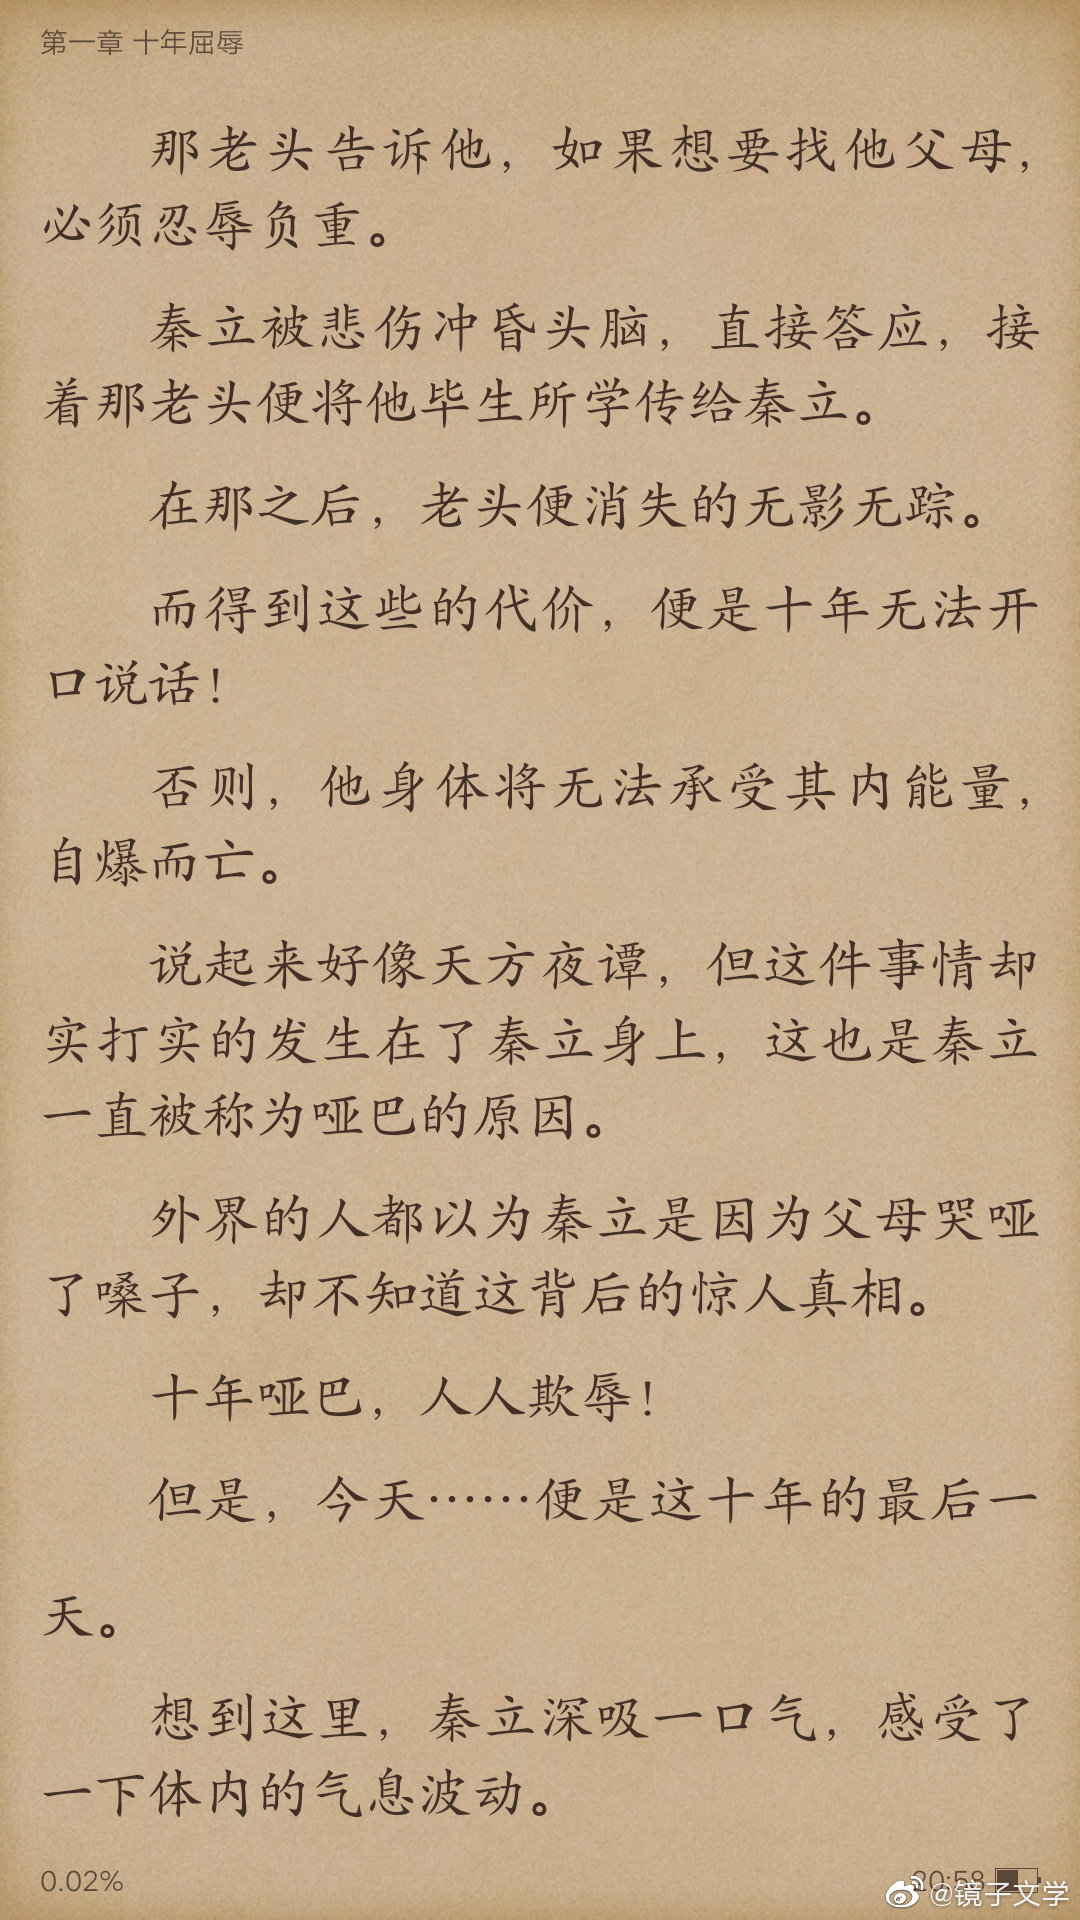 第一章 十年屈辱
那老头告诉他，如果想要找他父母，
必须忍辱负重。
秦立被悲伤冲昏头脑，直接答应，接
着那老头便将他毕生所学传给秦立。
在那之后，老头便消失的无影无踪。
而得到这些的代价，便是十年无法开
口说话！
否则，他身体将无法承受其内能量，
自爆而亡。
说起来好像天方夜谭，但这件事情却
实打实的发生在了秦立身上，这也是秦立
一直被称为哑巴的原因。
外界的人都以为秦立是因为父母哭哑
了嗓子，却不知道这背后的惊人真相。
十年哑巴，人人欺辱！
但是，今天……便是这十年的最后一
天。
想到这里，秦立深吸一口气，感受了
一下体内的气息波动。
0.02%
20:58
@镜子文学